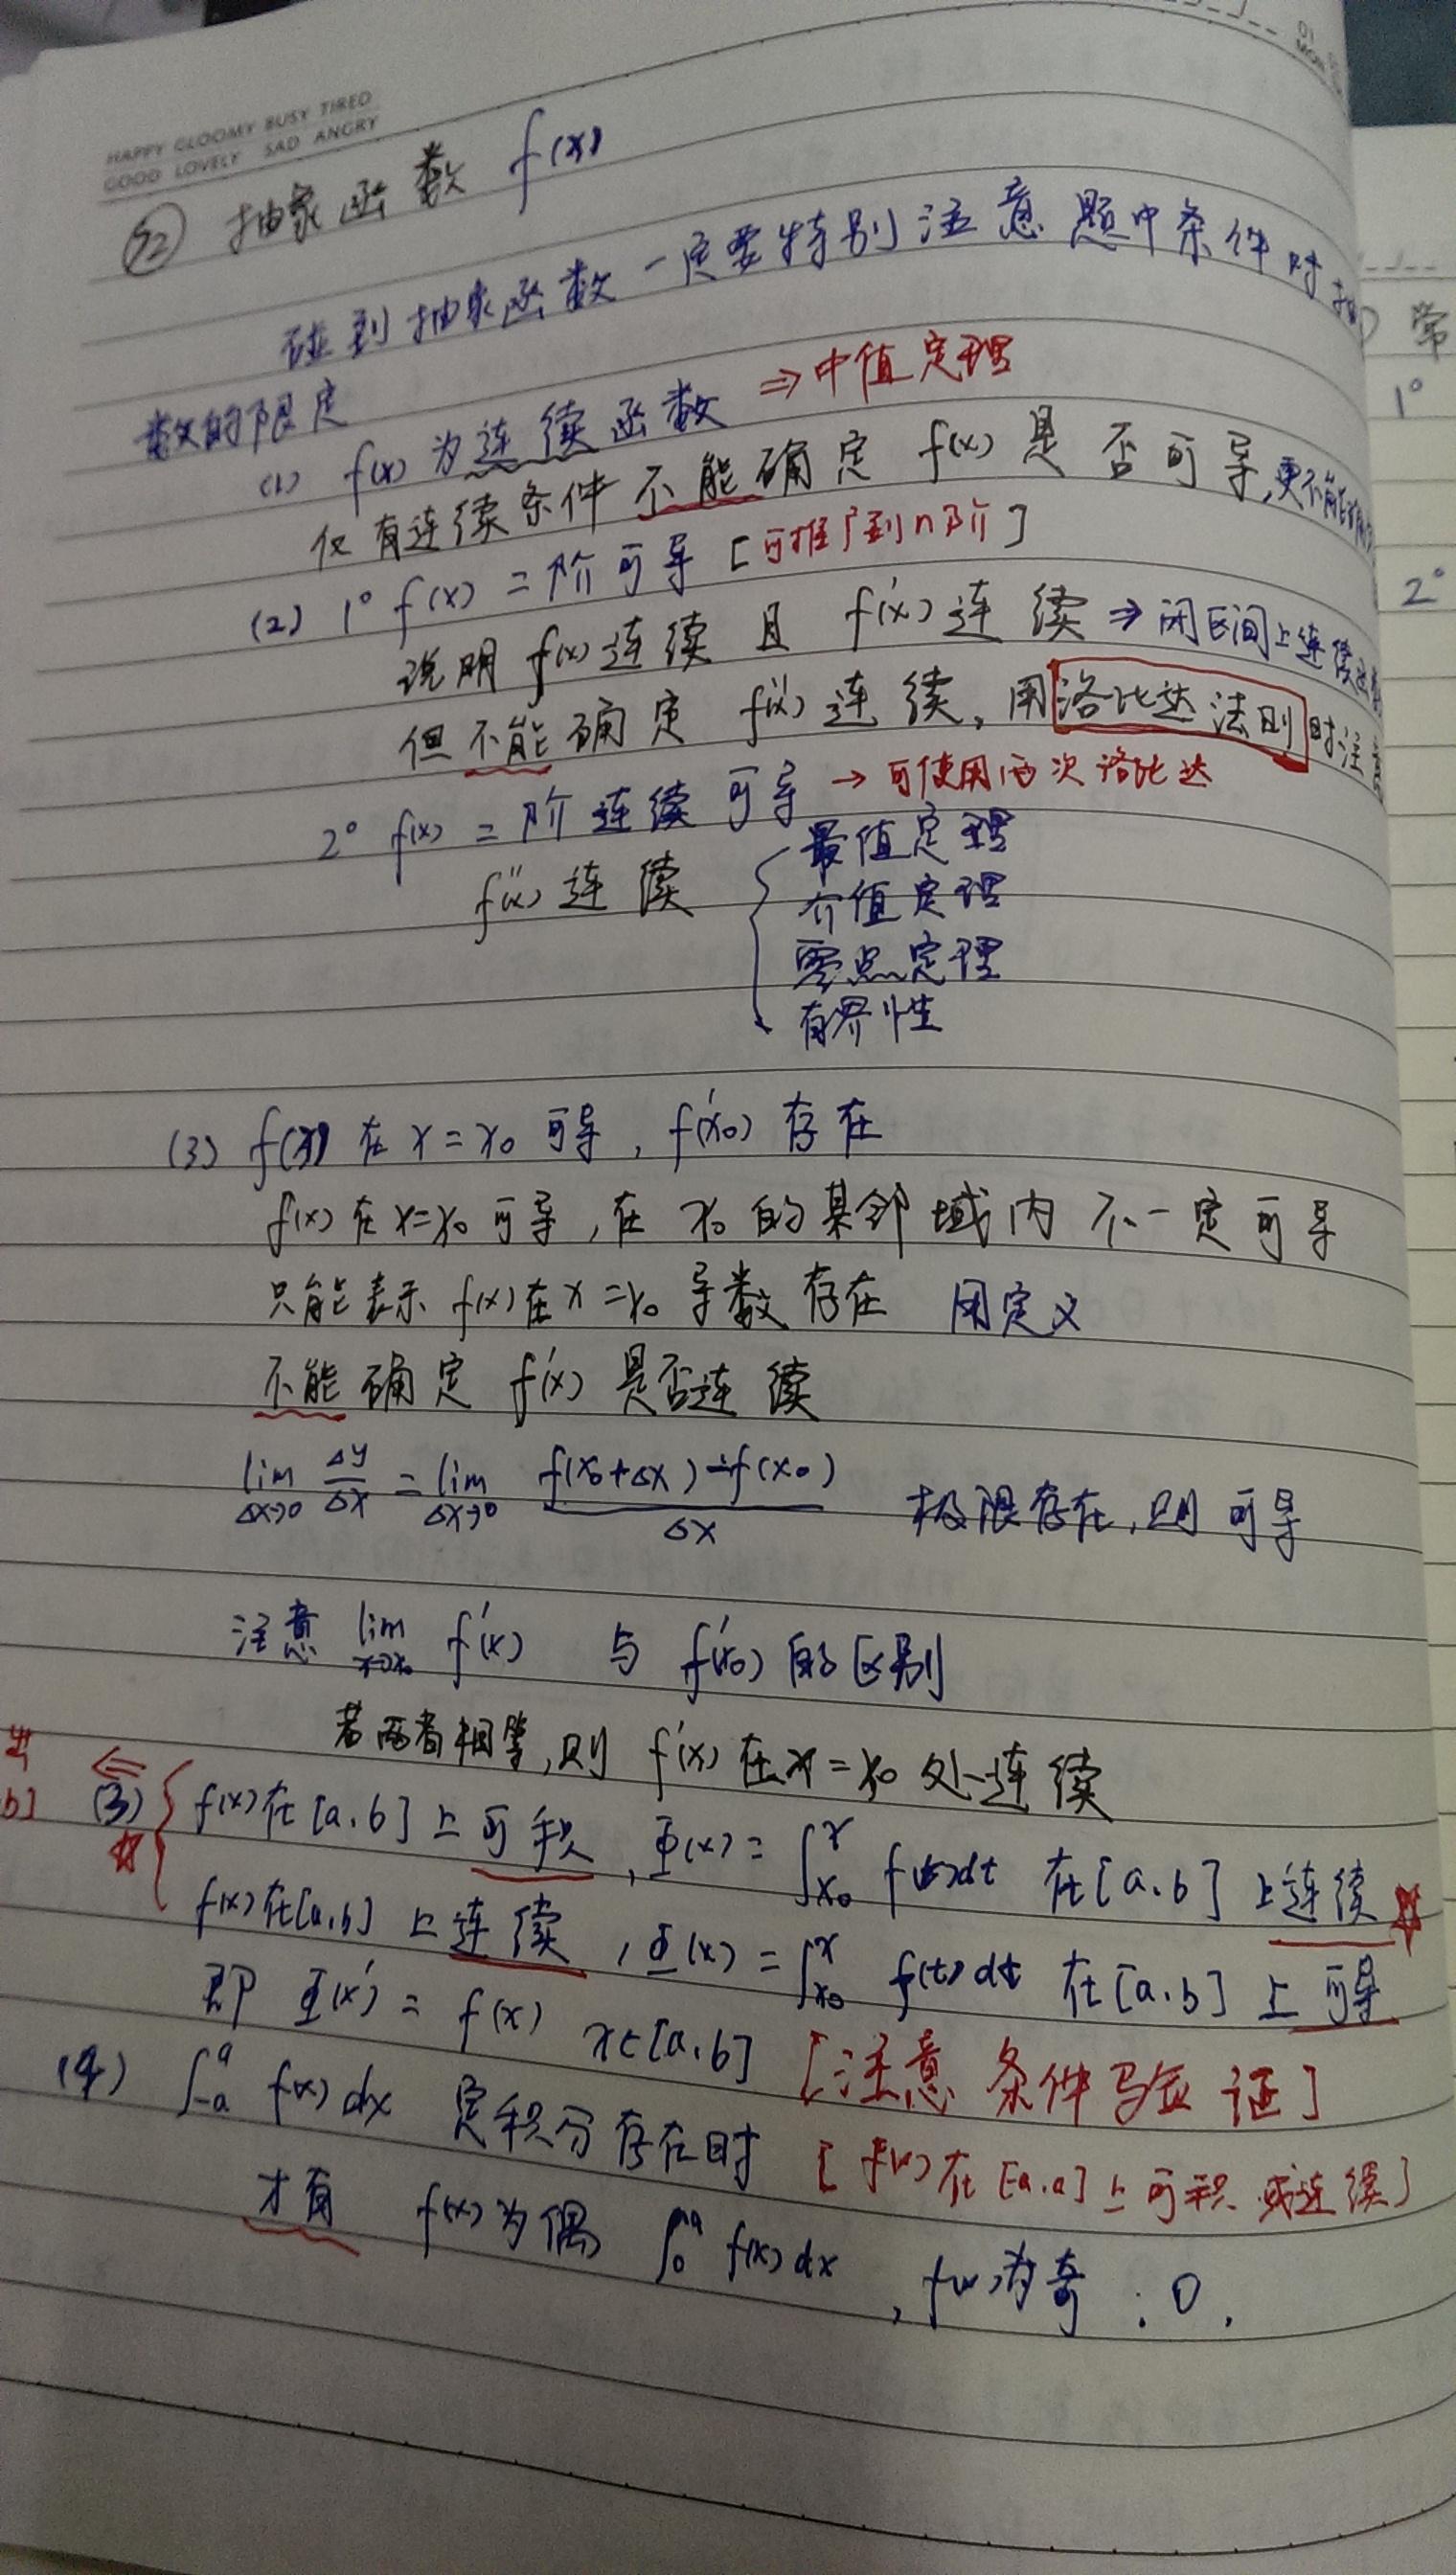 HAPPY GLOOMY BUSY TIRED
GOOD LOVELY SAD ANGRY
㉒ 抽象函数 f(x)
碰到抽象函数一定要特别注意题中条件对抽
数的限定
(1) f(x)为连续函数 ⇒中值定理
仅有连续条件不能确定 f(x) 是否可导,更不能
(2) 1° f(x) 二阶可导 [可推广到n阶]
说明 f(x)连续 且 f'(x)连续 ⇒闭区间上连续
但不能确定 f''(x)连续, 用洛比达法则时注
2° f(x) 二阶连续可导 → 可使用两次洛比达
f''(x)连续 { 最值定理
介值定理
零点定理
有界性
(3) f(x) 在 x=x₀ 可导, f'(x₀) 存在
f(x) 在 x=x₀ 可导, 在 x₀ 的某邻域内 不一定可导
只能表示 f(x)在x=x₀ 导数存在 用定义
不能确定 f'(x) 是否连续
lim Δx→0 Δy/Δx = lim Δx→0 (f(x₀+Δx)-f(x₀))/Δx 极限存在,则可导
注意 lim x→x₀ f'(x) 与 f'(x₀) 的区别
若两者相等,则 f'(x) 在x=x₀ 处连续
b] ⇐ (3) { f(x)在[a,b]上可积, Φ(x)=∫_{x₀}^{x} f(t)dt 在[a,b]上连续 ☆
☆ f(x)在[a,b]上连续, Φ(x)=∫_{x₀}^{x} f(t)dt 在[a,b]上可导
即 Φ'(x) = f(x) x∈[a,b] [注意条件验证]
(4) ∫_{-a}^{a} f(x)dx 定积分存在时 [f(x)在[-a,a]上可积或连续]
才有 f(x)为偶 ∫_{0}^{a} f(x)dx , f(x)为奇:0.
常
1°
2°